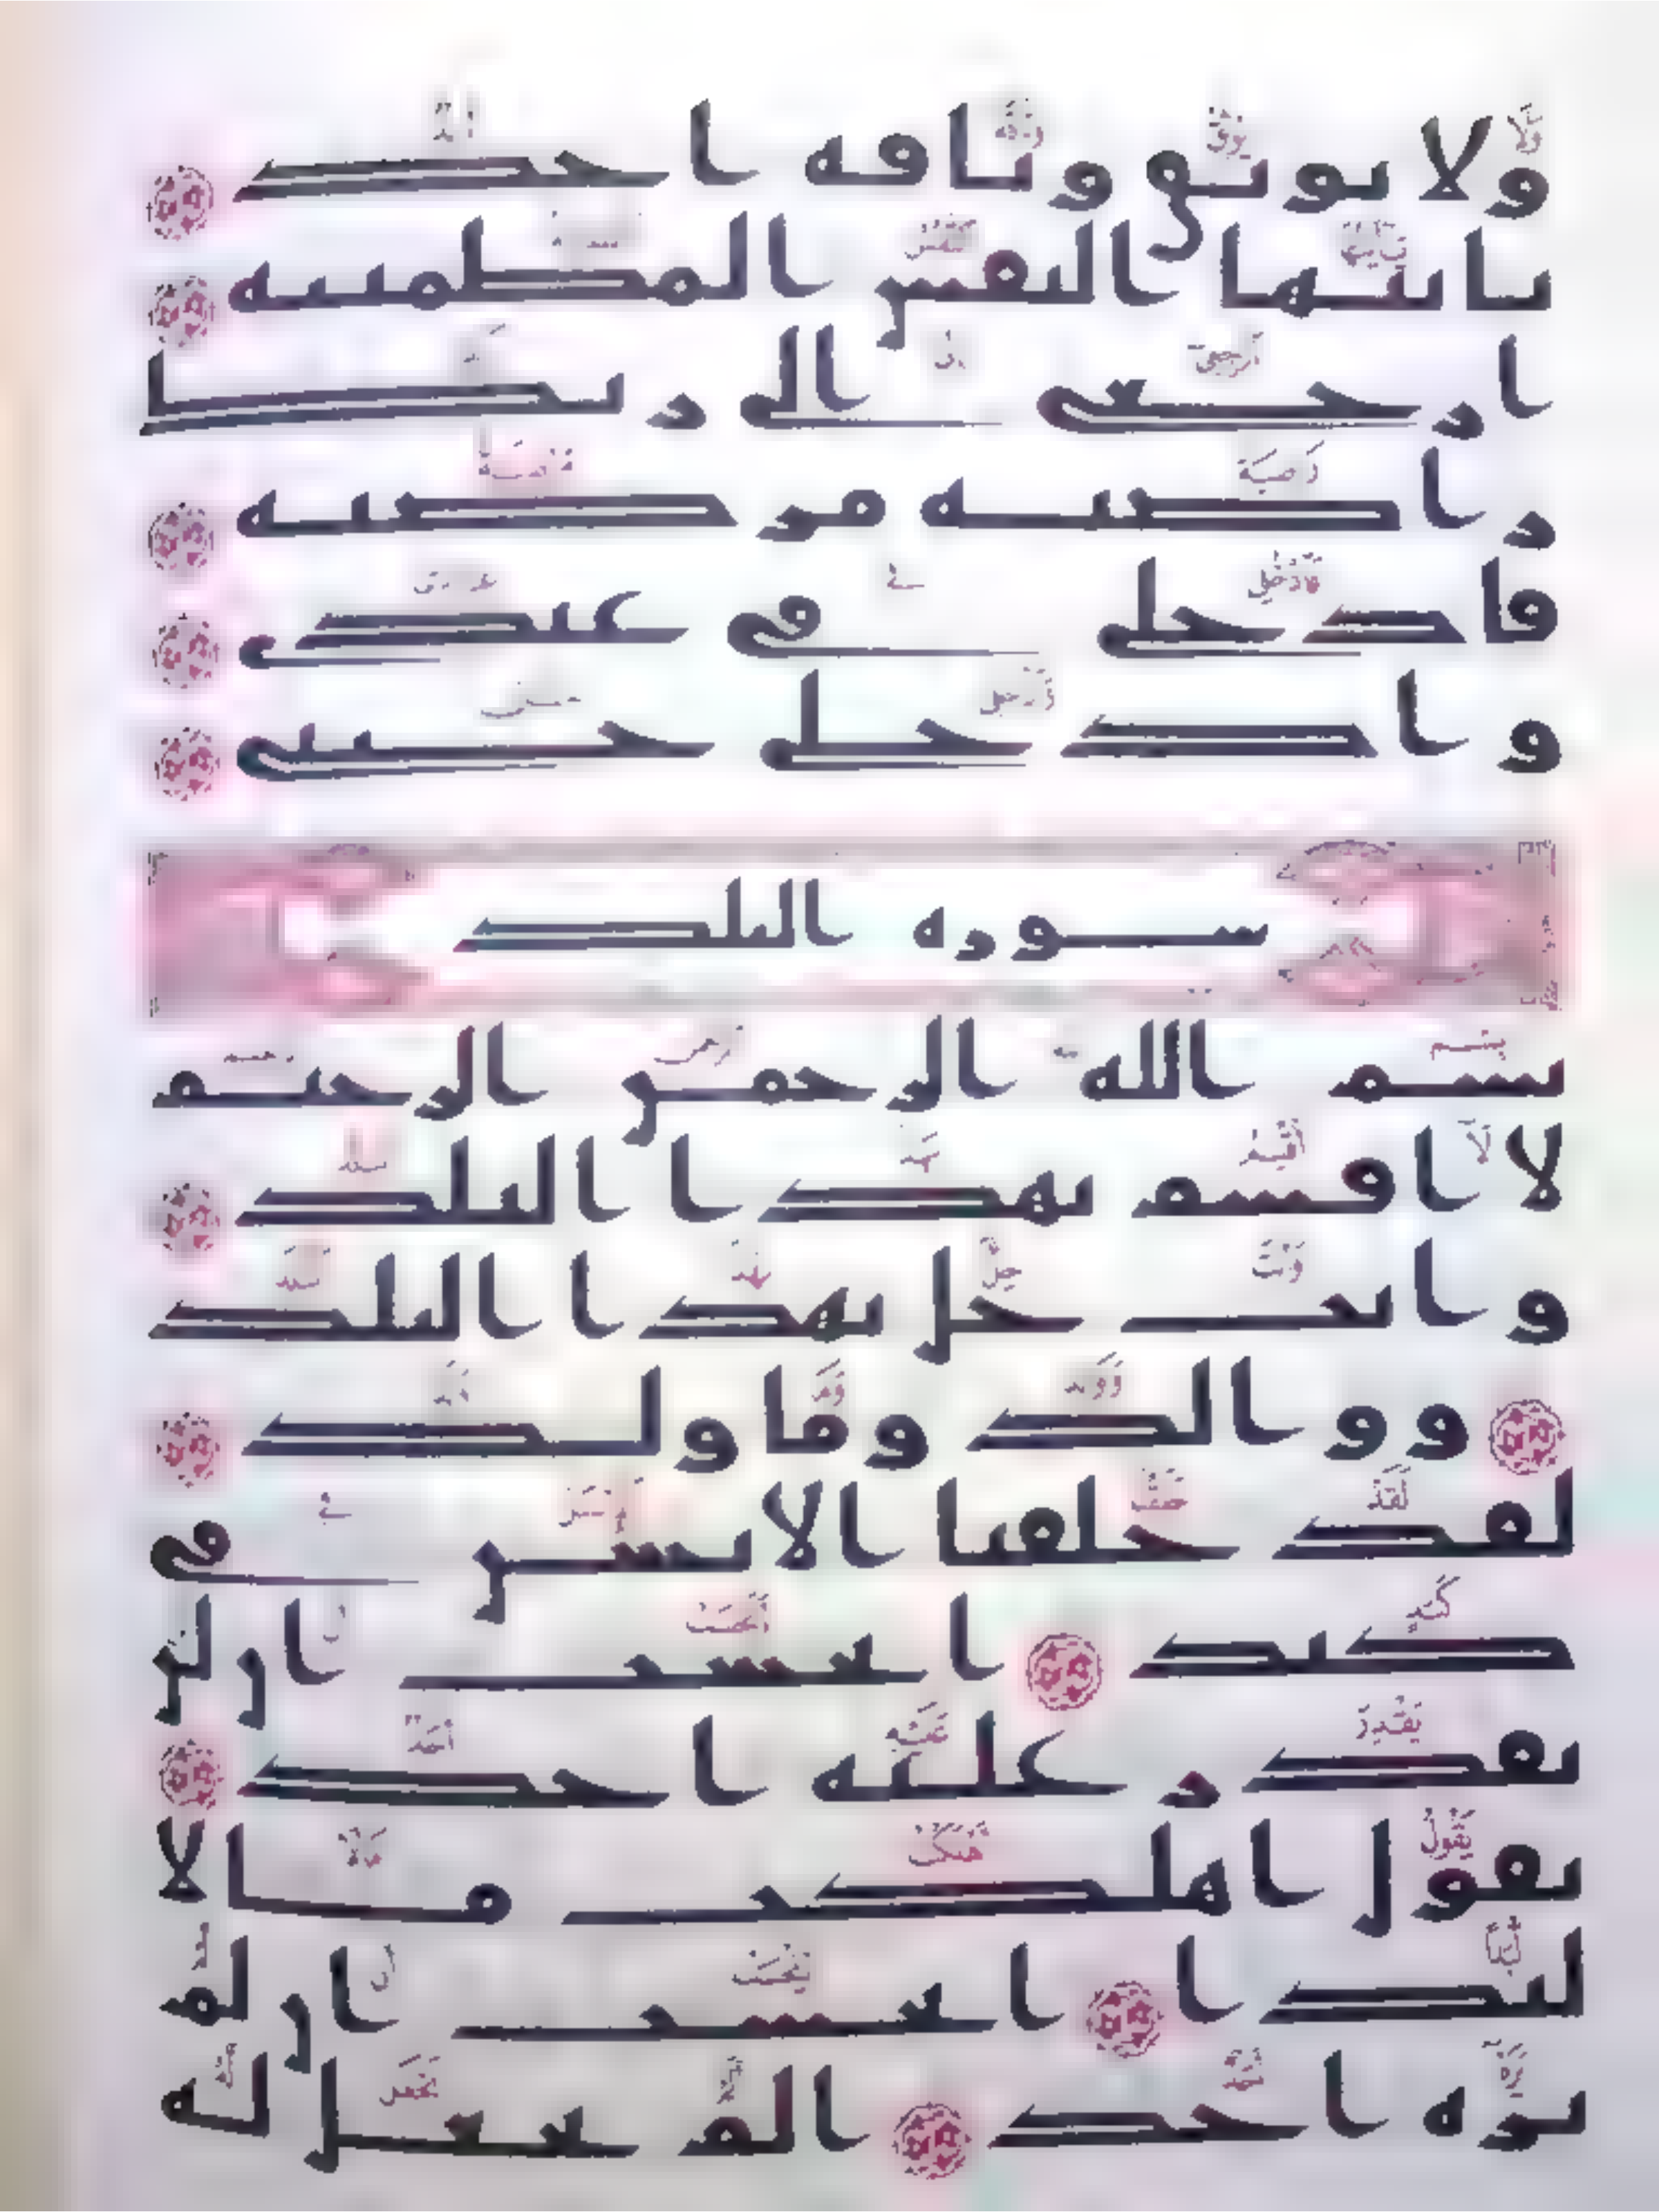 ولا يوثق وثاقه احد
يايتها النفس المطمينه
ارجعى الى ربك
راضيه مرضيه
فادخلى فى عبدى
وادخلى جنتى
سوره البلد
بسم الله الرحمن الرحيم
لا اقسم بهذا البلد
وانت حل بهذا البلد
ووالد وما ولد
لقد خلقنا الانسن فى
كبد ايحسب ان لن
يقدر عليه احد
يقول اهلكت مالا
لبدا ايحسب ان لم
يره احد الم نجعل له